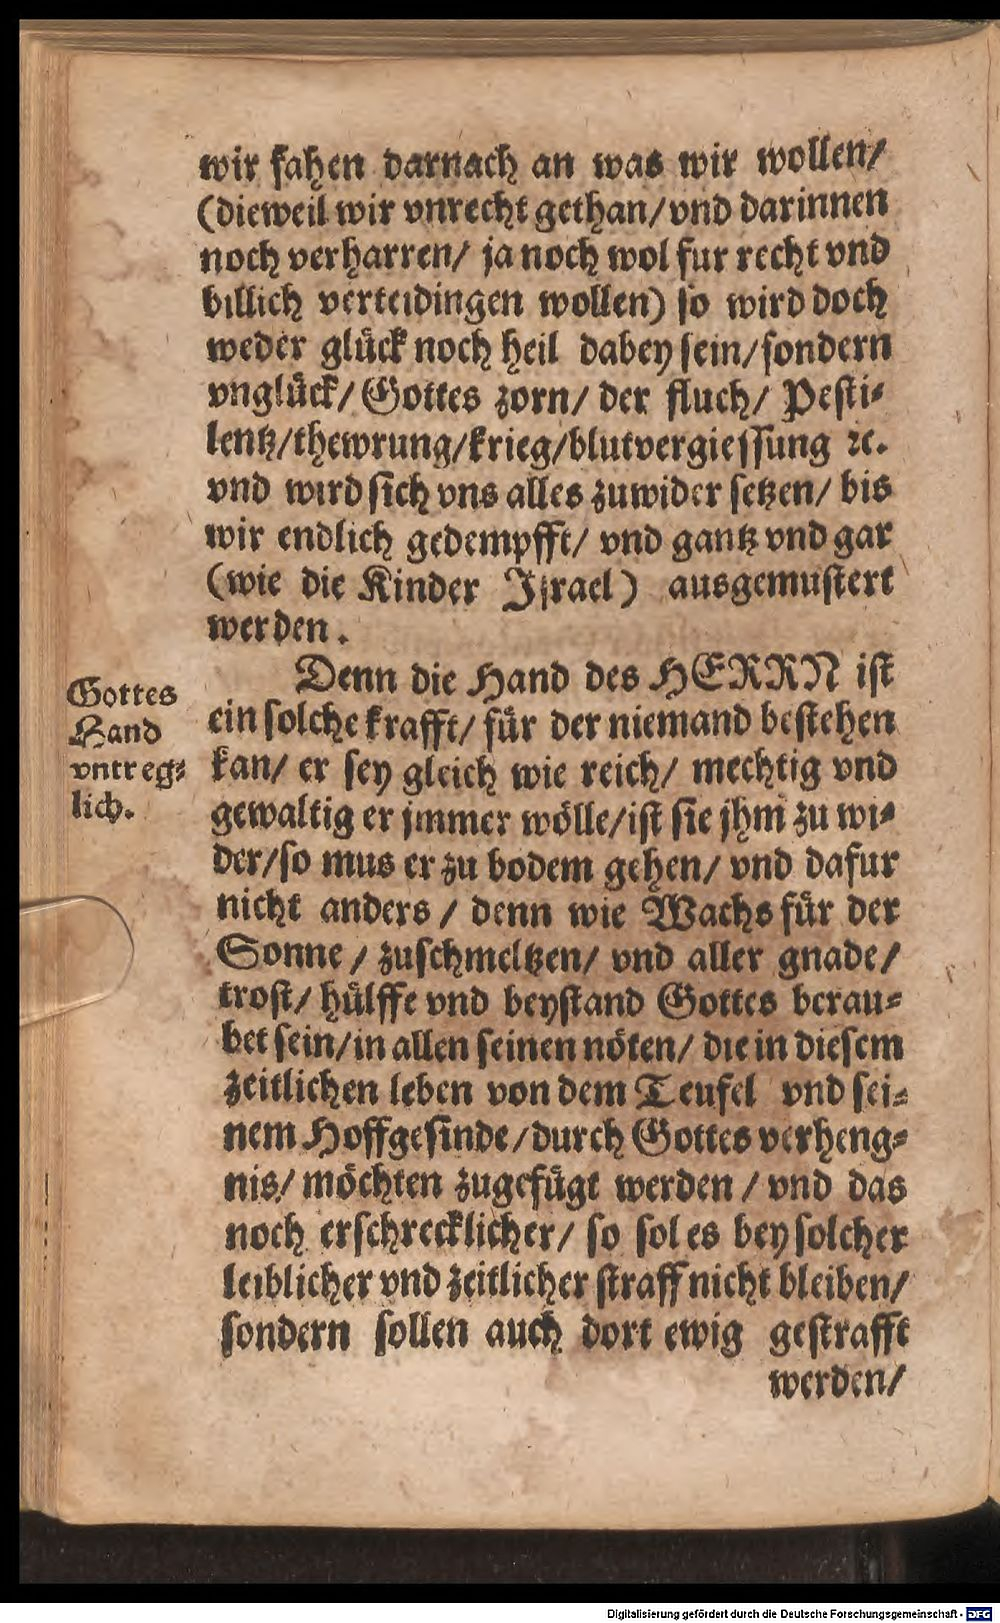 wir fahen darnach an was wir wollen/
(dieweil wir vnrecht gethan/vnd darinnen
noch verharren/ ja noch wol fur recht vnd
billich verteidingen wollen) so wird doch
weder glück noch heil dabey sein/sondern
vnglück/ Gottes zorn/ der fluch/ Pesti-
lentz/thewrung/krieg/blutvergiessung ꝛc.
vnd wird sich vns alles zuwider setzen/ bis
wir endlich gedempfft/ vnd gantz vnd gar
(wie die Kinder Israel) ausgemustert
werden.
Denn die Hand des HERRN ist
ein solche krafft/ für der niemand bestehen
kan/ er sey gleich wie reich/ mechtig vnd
gewaltig er jmmer wölle/ist sie jhm zu wi-
der/so mus er zu bodem gehen/ vnd dafur
nicht anders / denn wie Wachs für der
Sonne / zuschmeltzen/ vnd aller gnade/
trost/ hülffe vnd beystand Gottes berau-
bet sein/in allen seinen nöten/ die in diesem
zeitlichen leben von dem Teufel vnd sei-
nem Hoffgesinde/durch Gottes verheng-
nis/ möchten zugefügt werden / vnd das
noch erschrecklicher/ so sol es bey solcher
leiblicher vnd zeitlicher straff nicht bleiben/
sondern sollen auch dort ewig gestrafft
werden/
Gottes
Hand
vntreg-
lich.
Digitalisierung gefördert durch die Deutsche Forschungsgemeinschaft - DFG